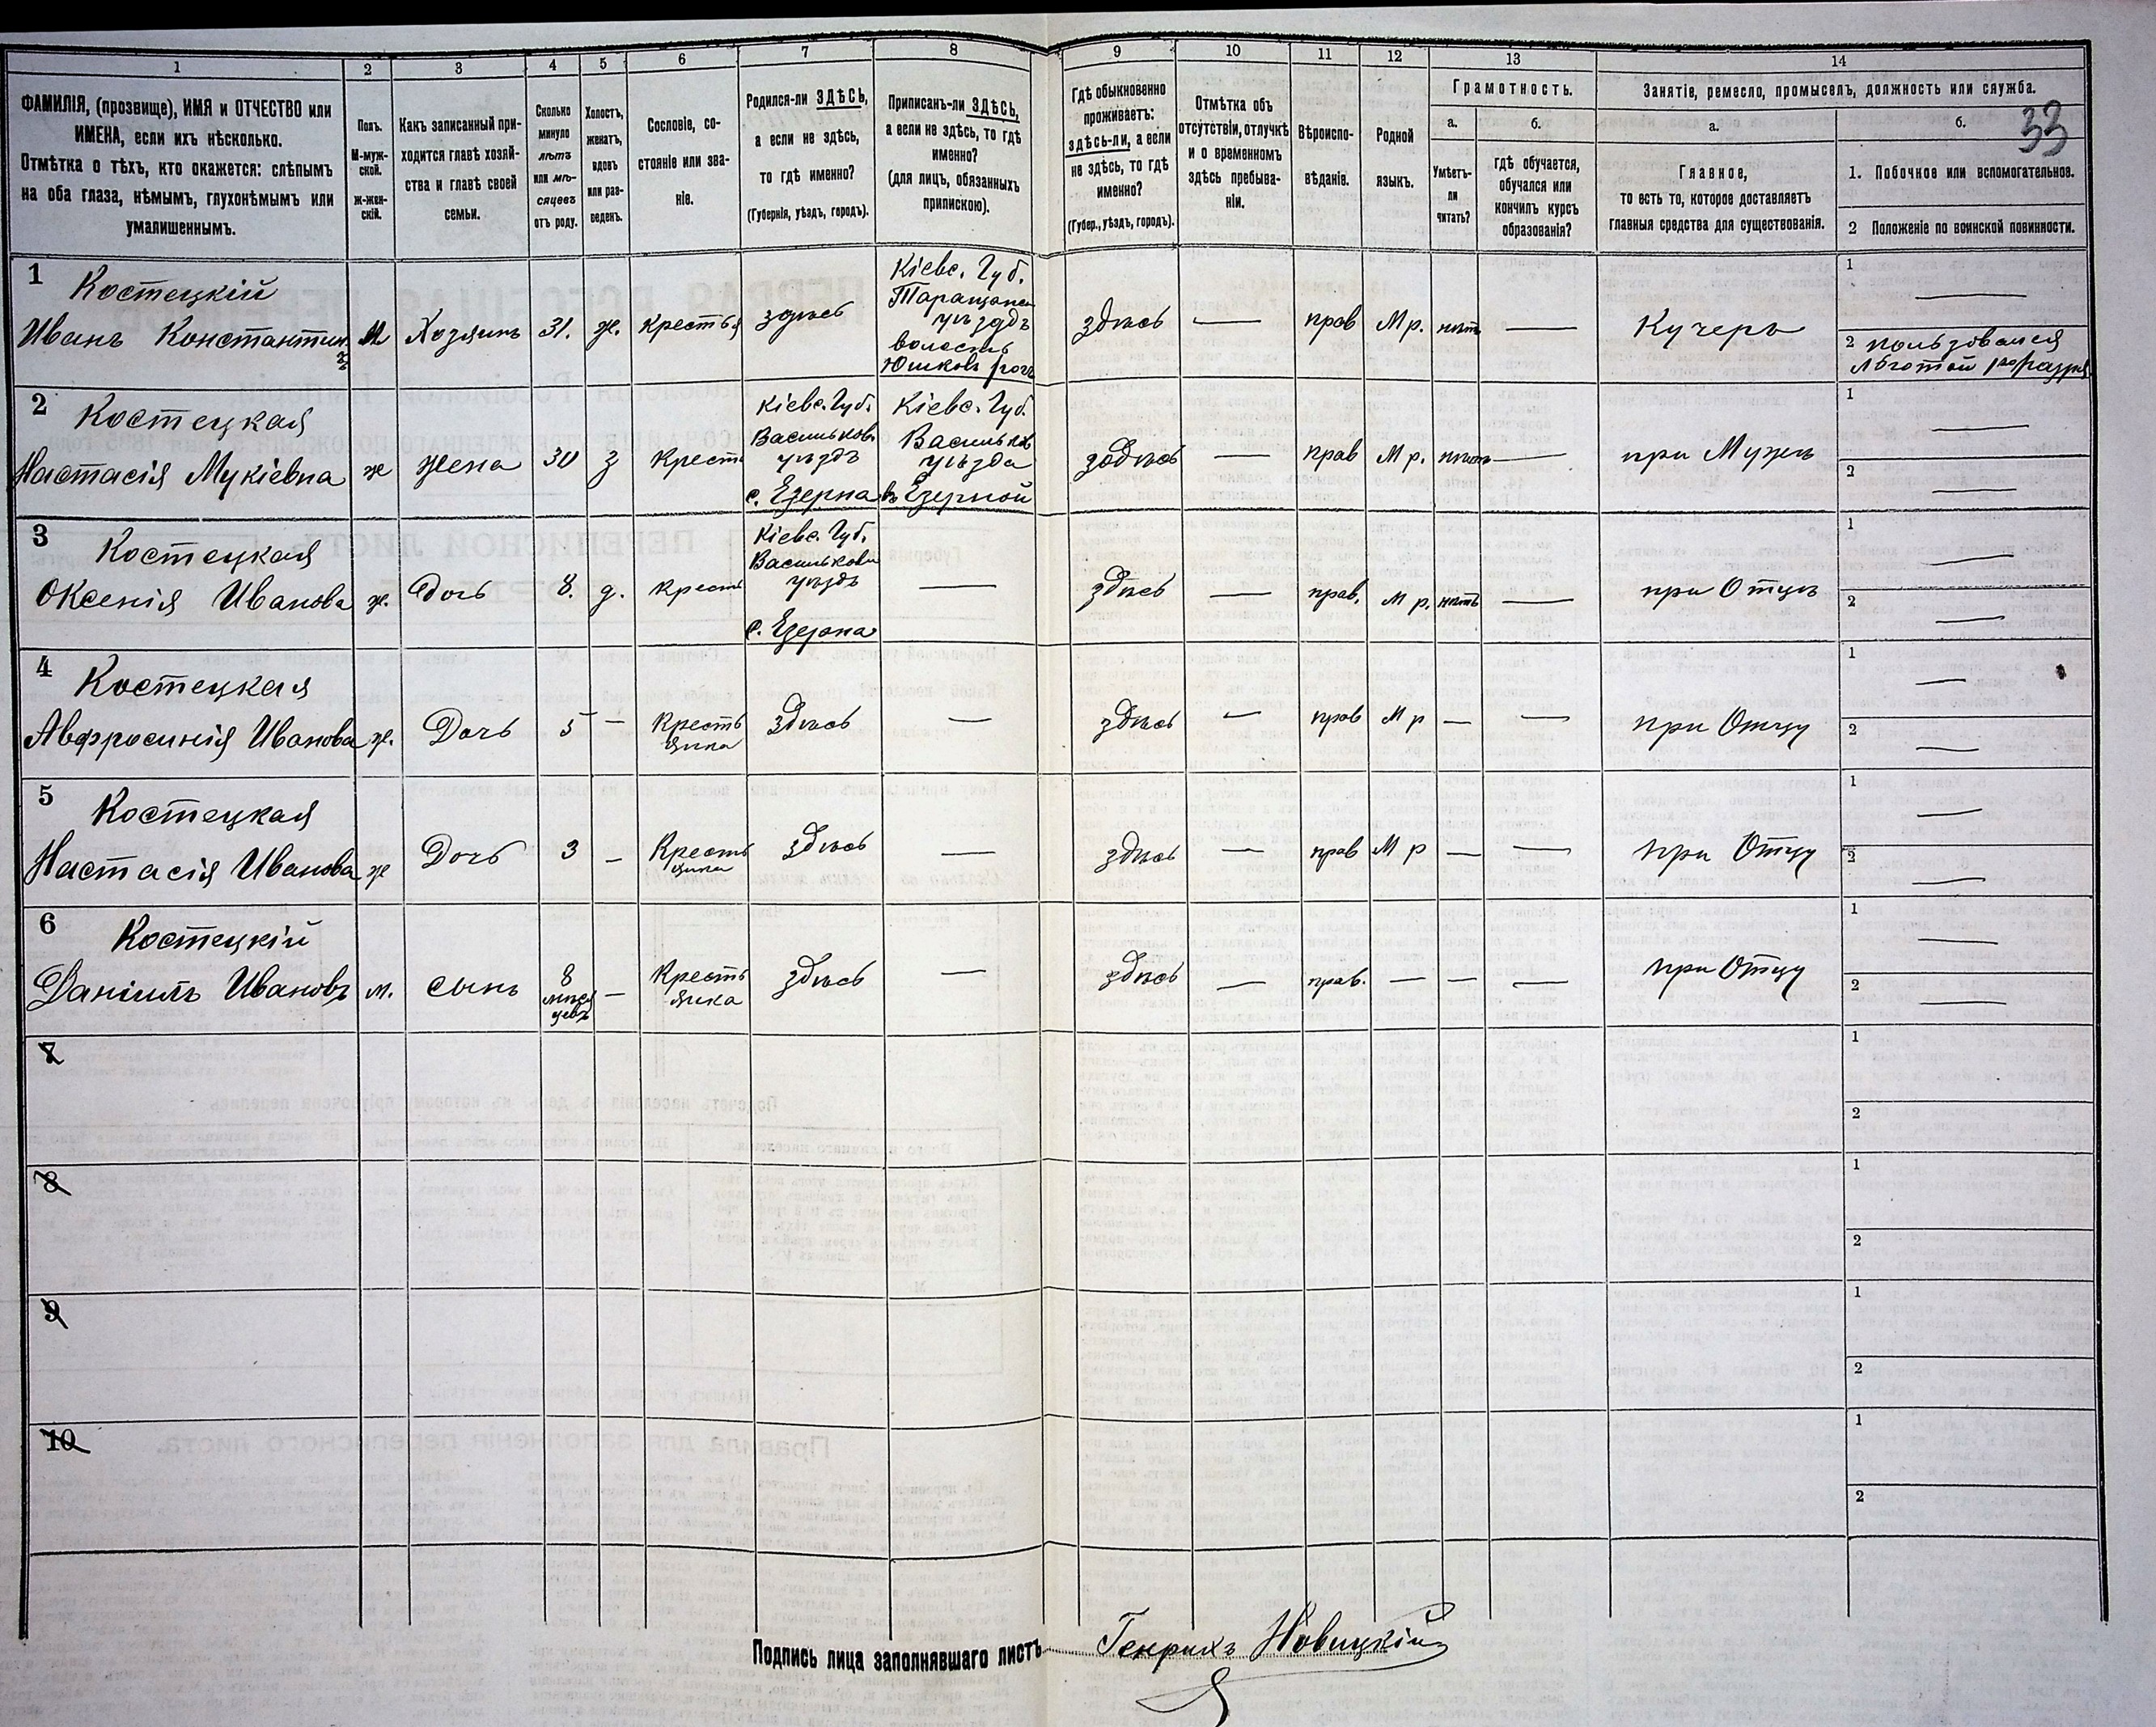 1 2 3 4 5 6 7 8 9 10 11 12 13 14
ФАМИЛІЯ, (прозвище), ИМЯ и ОТЧЕСТВО или
ИМЕНА, если ихъ нѣсколько.
Отмѣтка о тѣхъ, кто окажется: слѣпымъ
на оба глаза, нѣмымъ, глухонѣмымъ или
умалишеннымъ.
Полъ.
М-муж-
ской.
ж-жен-
скій.
Какъ записанный при-
ходится главѣ хозяй-
ства и главѣ своей
семьи.
Сколько
минуло
лѣтъ
или мѣ-
сяцевъ
отъ роду.
Холостъ,
женатъ,
вдовъ
или раз-
веденъ.
Сословіе, со-
стояніе или зва-
ніе.
Родился-ли ЗДѢСЬ,
а если не здѣсь,
то гдѣ именно?
(Губернія, уѣздъ, городъ).
Приписанъ-ли ЗДѢСЬ,
а если не здѣсь, то гдѣ
именно?
(для лицъ, обязанныхъ
припискою).
Гдѣ обыкновенно
проживаетъ:
здѣсь-ли, а если
не здѣсь, то гдѣ
именно?
(Губер., уѣздъ, городъ).
Отмѣтка объ
отсутствіи, отлучкѣ
и о временномъ
здѣсь пребыва-
ніи.
Вѣроиспо-
вѣданіе.
Родной
языкъ.
Грамотность.
а.
Умѣетъ-
ли
читать?
б.
гдѣ обучается,
обучался или
кончилъ курсъ
образованія?
Занятіе, ремесло, промыселъ, должность или служба.
а.
Главное,
то есть то, которое доставляетъ
главныя средства для существованія.
б.
33
1. Побочное или вспомогательное.
2 Положеніе по воинской повинности.
1
Костецкій
Иванъ Константин
М
Хозяинъ
31.
ж.
крестья
здѣсь
Кіевс. Губ.
Таращанс
уѣздъ
волость
Юшковъ рогъ
здѣсь
—
прав
Мр.
нѣтъ
—
Кучеръ
1 —
2 пользовался
льготой 1го разряд
2
Костецкая
Настасія Мукіевна
ж
жена
30
з
Крест
Кіевс. Губ.
Васильков.
уѣздъ
с. Езерна
Кіевс. Губ.
Васильков
уѣзда
въ Езерной
здѣсь
—
прав
Мр.
нѣтъ
—
при Мужѣ
1 —
2 —
3
Костецкая
Оксенія Иванова
ж.
Дочь
8.
д.
Крест
Кіевс. Губ.
Васильков
уѣздъ
с. Езерна
—
здѣсь
—
прав.
Мр.
нѣтъ
—
при Отцѣ
1 —
2 —
4
Костецкая
Авфросинія Иванова
ж.
Дочь
5
—
Кресть
янка
здѣсь
—
здѣсь
—
прав
Мр
—
—
при Отцу
1 —
2 —
5
Костецкая
Настасія Иванова
ж
Дочь
3
—
Кресть
янка
здѣсь
—
здѣсь
—
прав
Мр
—
—
при Отцу
1 —
2 —
6
Костецкій
Даніилъ Ивановъ
м.
сынъ
8
мѣся
цевъ
—
Кресть
янка
здѣсь
—
здѣсь
—
прав.
—
—
—
при Отцу
1 —
2 —
7
1
2
8
1
2
9
1
2
10
1
2
Подпись лица заполнявшаго листъ Генрихъ Новицкій